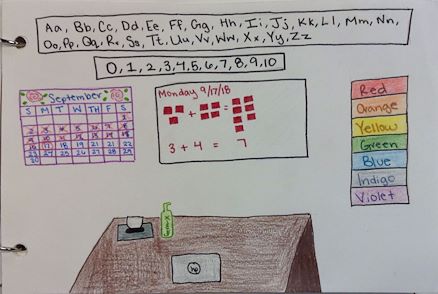 Aa, Bb, Cc, Dd, Ee, Ff, Gg, Hh, Ii, Jj, Kk, Ll, Mm, Nn,
Oo, Pp, Qq, Rr, Ss, Tt, Uu, Vv, Ww, Xx, Yy, Zz
0, 1, 2, 3, 4, 5, 6, 7, 8, 9, 10
September
S M T W TH F S
1
2 3 4 5 6 7 8
9 10 11 12 13 14 15
16 17 18 19 20 21 22
23 24 25 26 27 28 29
30
Monday 9/17/18
+ =
3 + 4 = 7
Red
Orange
Yellow
Green
Blue
Indigo
Violet